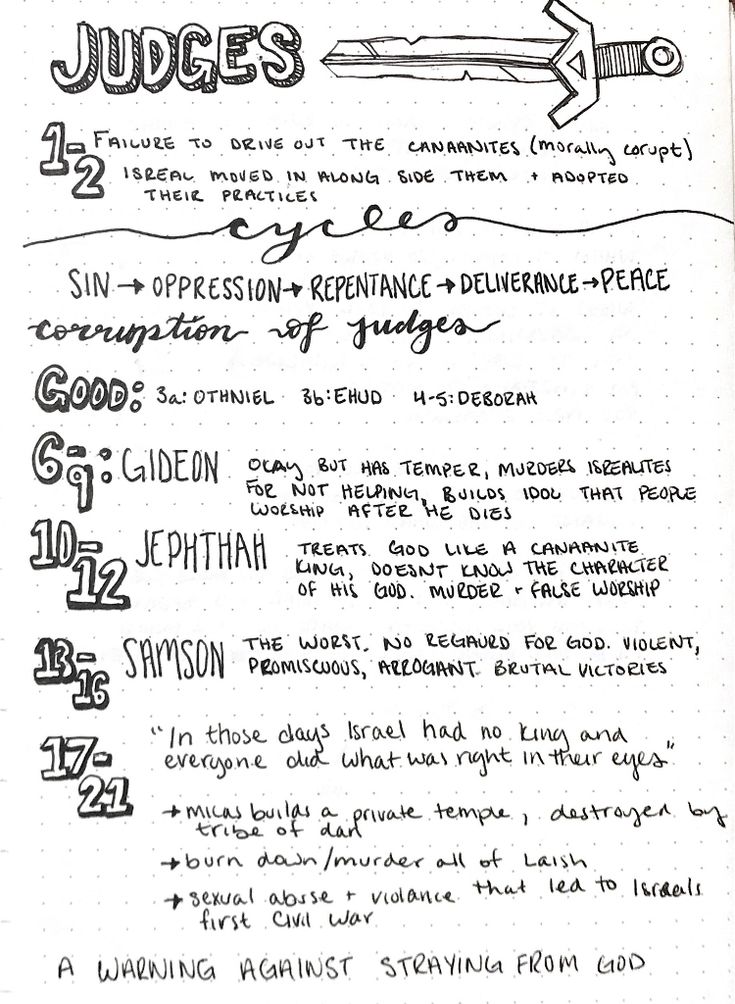 JUDGES
1-2 FAILURE TO DRIVE OUT THE CANAANITES (morally corupt)
ISREAL MOVED IN ALONG SIDE THEM + ADOPTED
THEIR PRACTICES
cycles
SIN → OPPRESSION → REPENTANCE → DELIVERANCE → PEACE
corruption of judges
GOOD: 3a: OTHNIEL 3b: EHUD 4-5: DEBORAH
6-9: GIDEON OKAY BUT HAS TEMPER, MURDERS ISREALITES
FOR NOT HELPING, BUILDS IDOL THAT PEOPLE
WORSHIP AFTER HE DIES
10-12 JEPHTHAH TREATS GOD LIKE A CANAANITE
KING, DOESNT KNOW THE CHARACTER
OF HIS GOD. MURDER + FALSE WORSHIP
13-16 SAMSON THE WORST. NO REGAURD FOR GOD. VIOLENT,
PROMISCUOUS, ARROGIANT. BRUTAL VICTORIES
17-21 "In those days Israel had no king and
everyone did what was right in their eyes"
→ micas builds a private temple, destroyed by
tribe of dan
→ burn down/murder all of Laish
→ sexual abuse + violance that led to Isreals
first Civil War
A WARNING AGAINST STRAYING FROM GOD